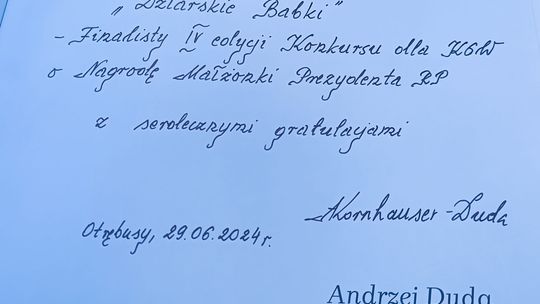 „Dziarskie Babki”
- Finalisty IV edycji Konkursu dla KGW
o Nagrodę Małżonki Prezydenta RP
z serdecznymi gratulacjami
AKornhauser-Duda
Otrębusy, 29.06.2024 r.
Andrzej Duda